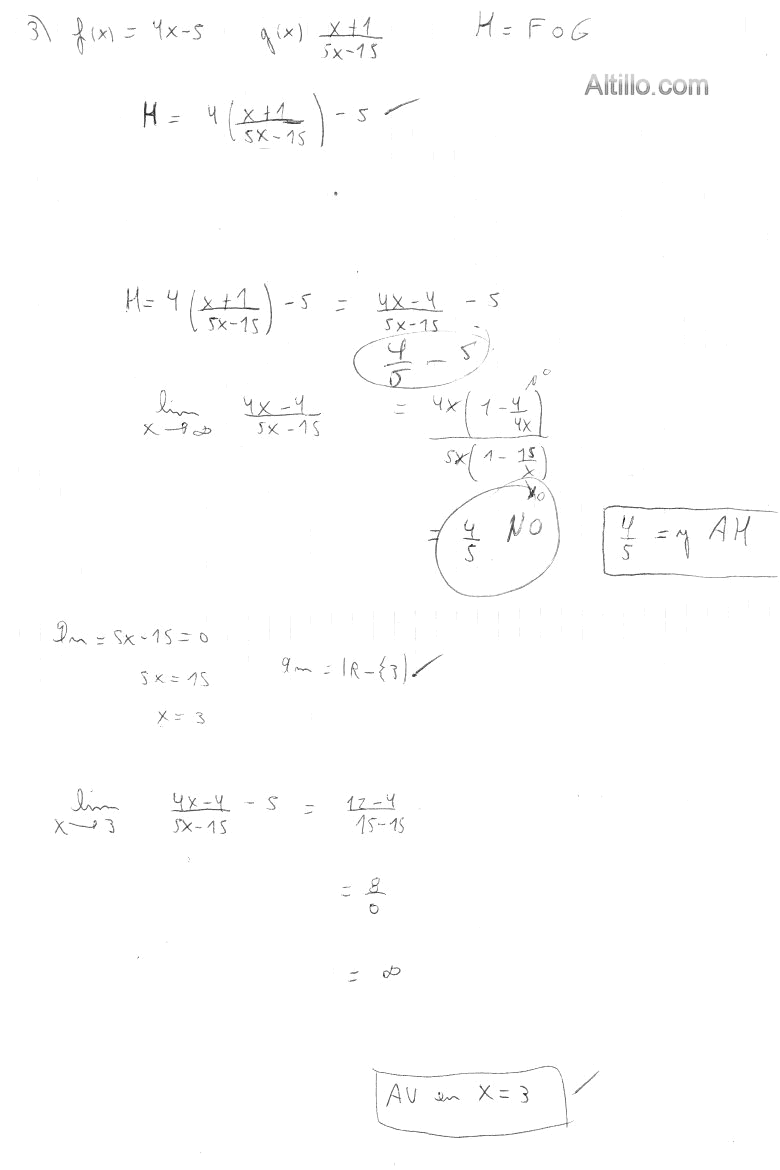 3) f(x) = 4x-5 g(x) x+1/5x-15 H = F o G
Altillo.com
H = 4(x+1/5x-15) - 5 ✓
H = 4(x+1/5x-15) - 5 = 4x-4/5x-15 - 5
4/5 - 5
lim x→∞ 4x-4/5x-15 = 4x(1-4/4x)/5x(1-15/x)
= 4/5 NO
4/5 = y AH
= 5x-15=0
5x = 15
= IR-{3} ✓
x = 3
lim x→3 4x-4/5x-15 - 5 = 12-4/15-15
= 8/0
= ∞
AV en x = 3 ✓